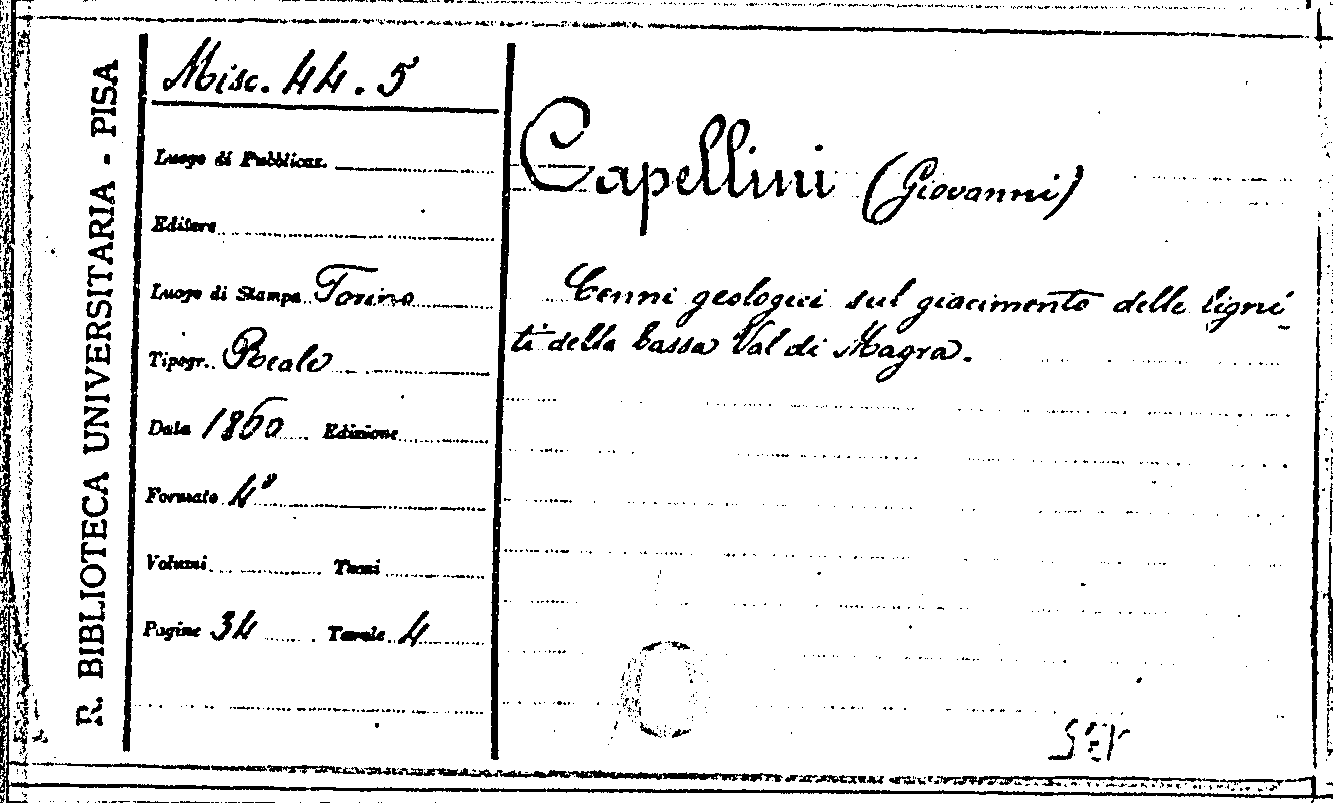 R. BIBLIOTECA UNIVERSITARIA - PISA
Misc. 44. 5
Luogo di Pubblicaz.
Editore
Luogo di Stampa Torino
Tipogr. Reale
Data 1860 Edizione
Formato 4°
Volumi Tomi
Pagine 34 Tavole 4
Capellini (Giovanni)
Cenni geologici sul giacimento delle ligni-
ti della bassa Val di Magra.